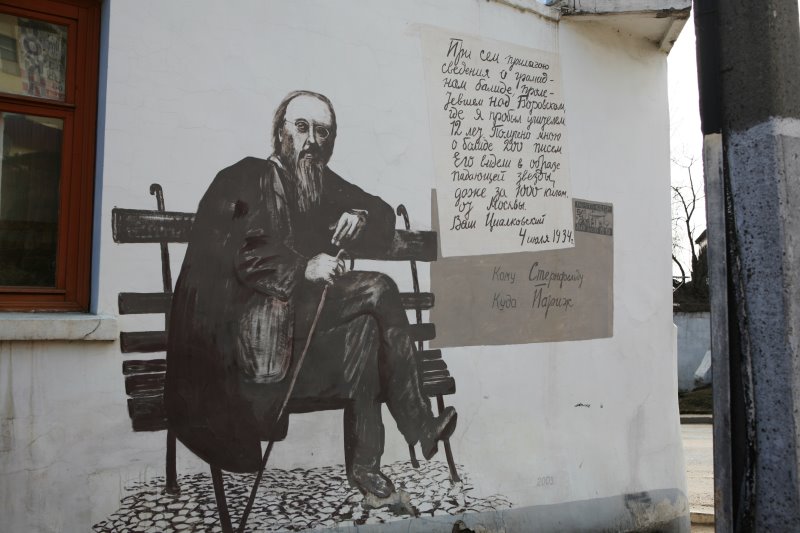 При сем прилагаю
сведения о громад-
ном балиде, проле-
тевшем над Боровском
где я пробыл учителем
12 лет. Получено мною
о балиде 200 писем
Его видели в образе
падающей звезды,
даже за 1000 килом.
от Москвы.
Ваш Циалковский
4 июля 1934г.
Кому Стернфельду
Куда Париж
2003